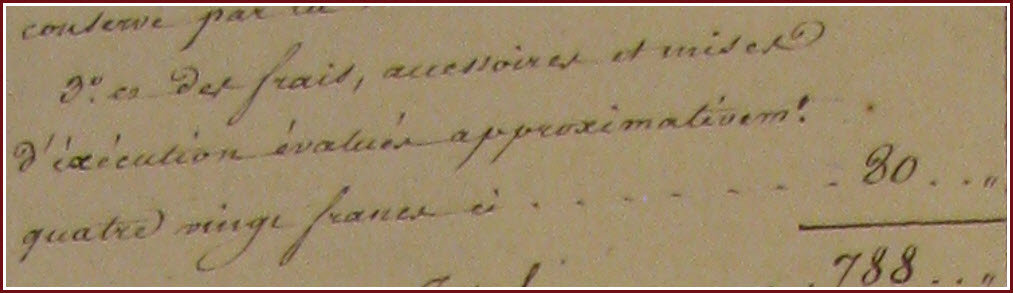 conserve par la
3°. et des frais, accessoires et mises
d'éxécution évalués approximativem.t
quatre vingt francs ci . . . . . . . 80 . . "
788 . . "